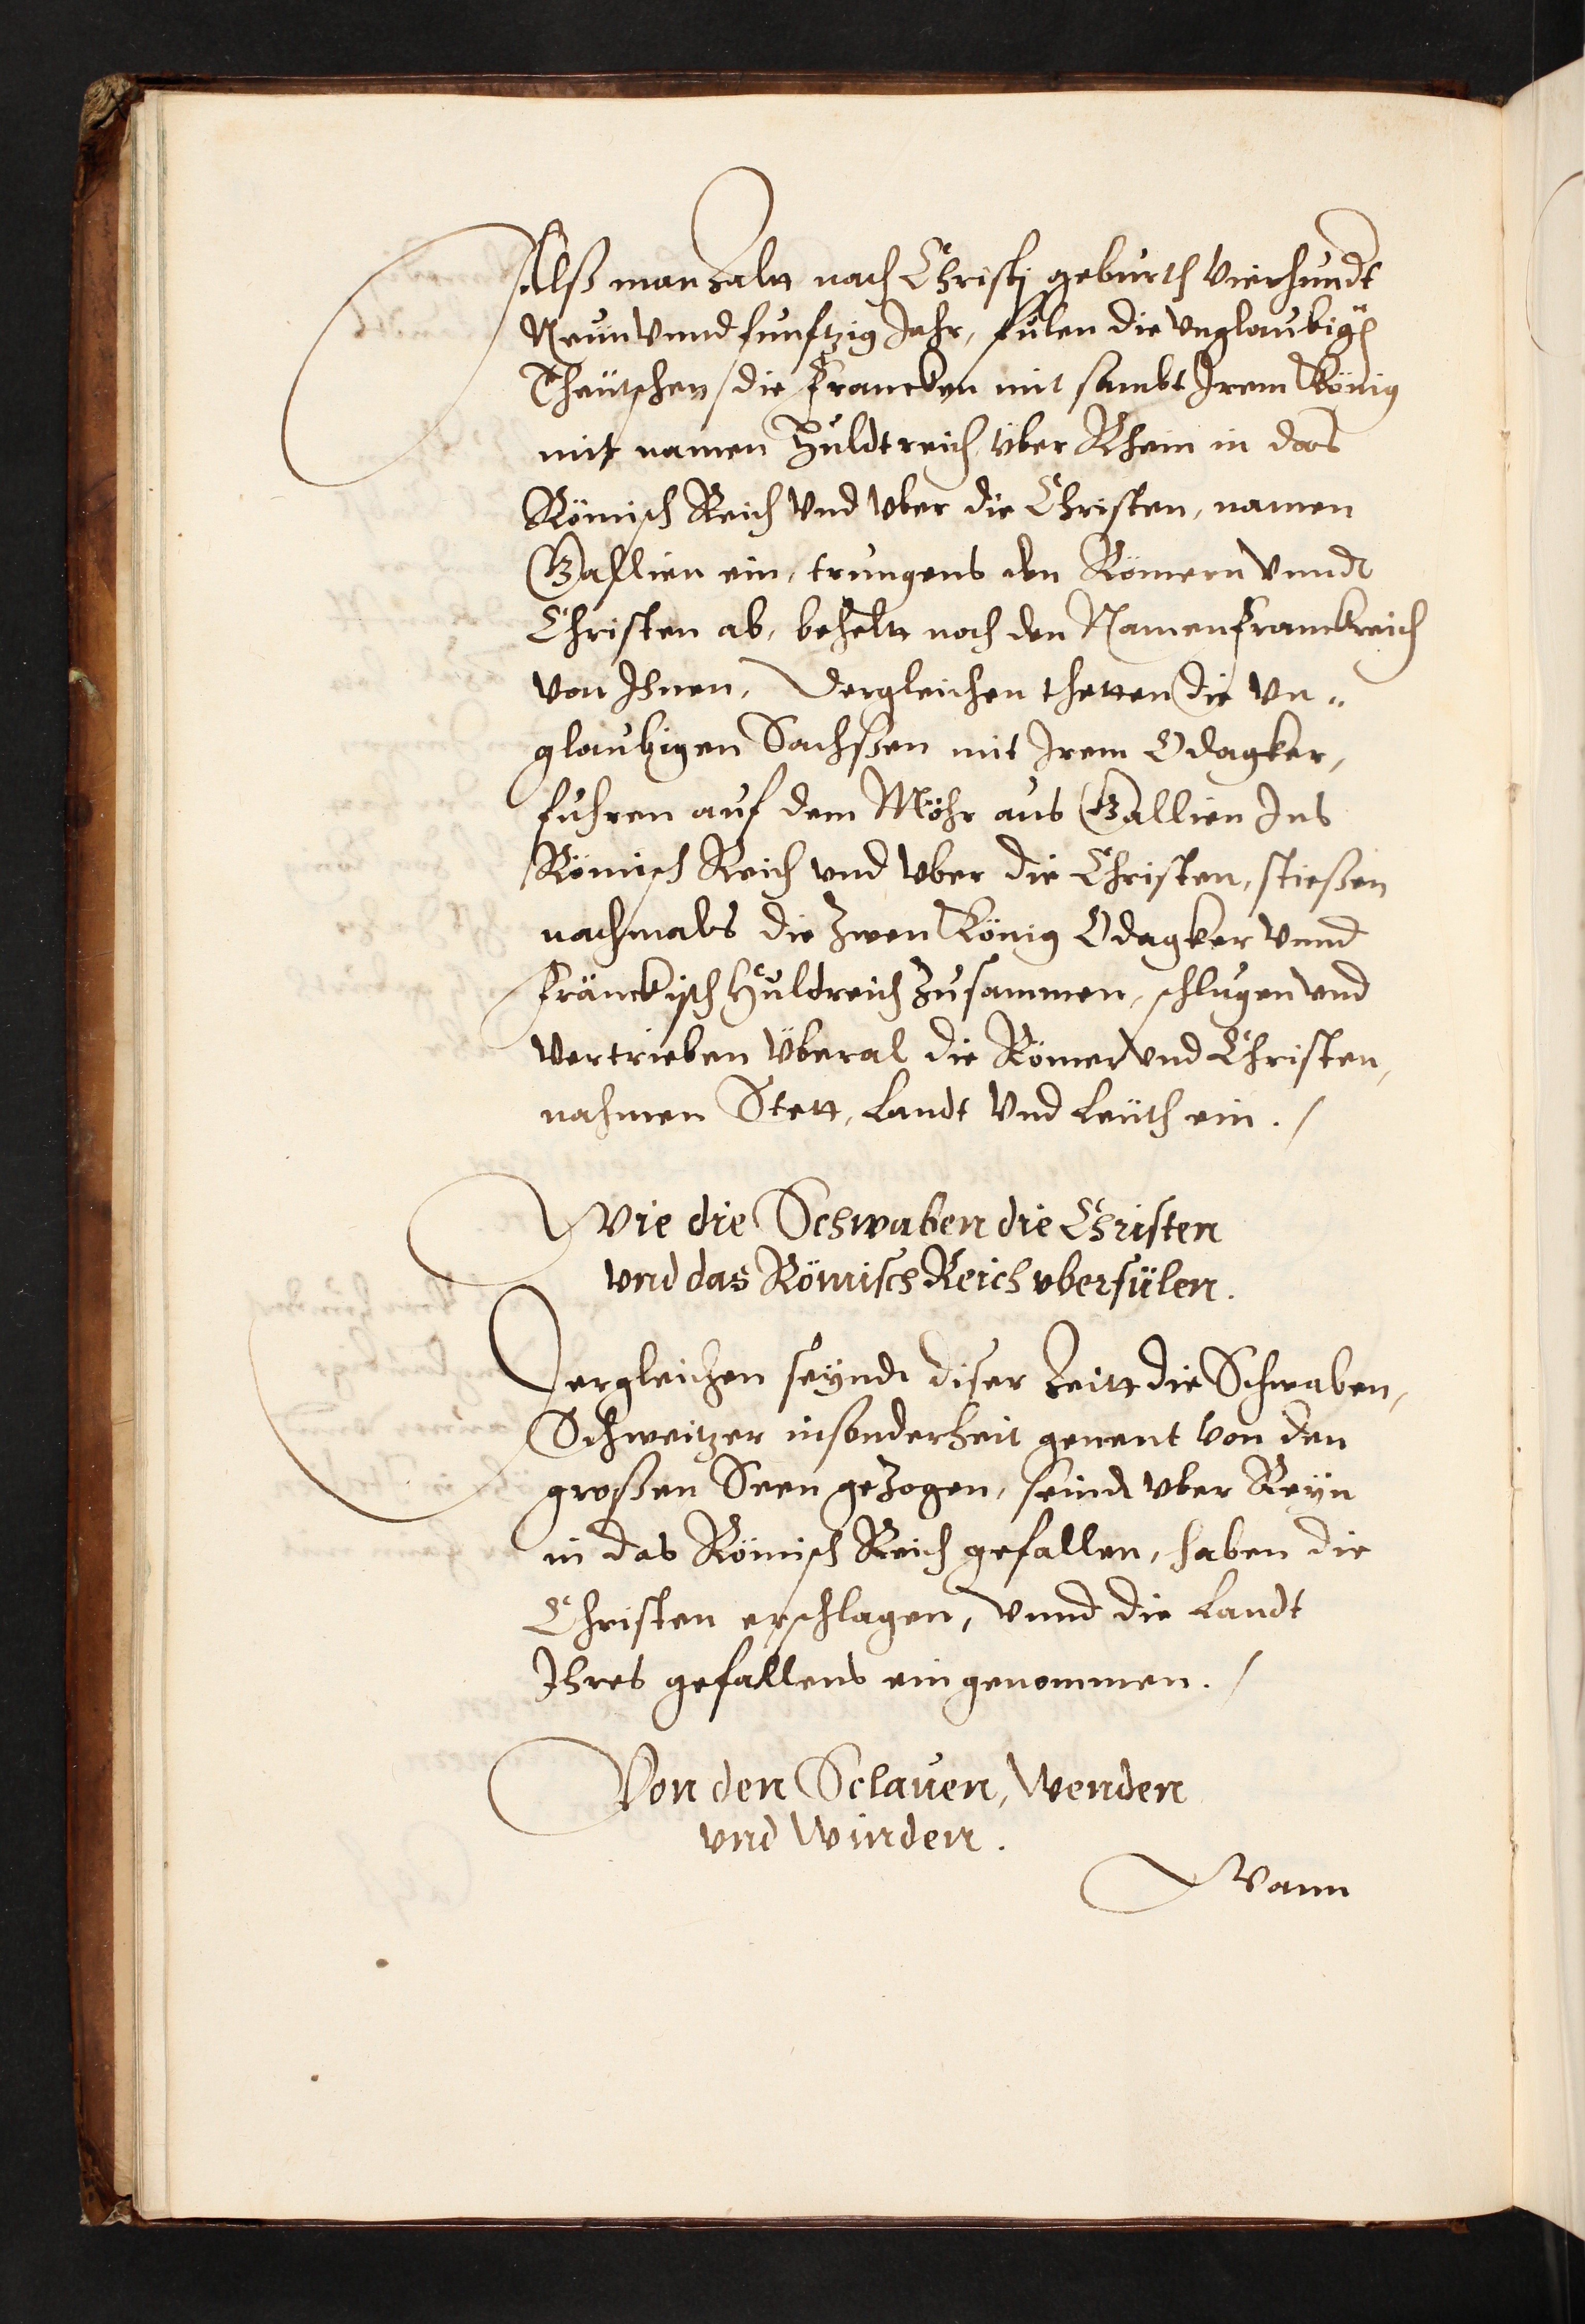 Alß man Zaltt nach Christj geburth Vierhundt
Neun Vnnd funftzig Jahr, fülen die Vnglaubigen
Theütschen / die Francken mit sambt Irem König
mit namen Huldtreich Über Rhein in das
Römisch Reich Vnd Vber die Christen, namen
Gallien ein, trungens den Römern Vnndt
Christen ab, beheltt noch den Namen Franckreich
Von Ihnen, Dergleichen thetten die Vn-
glaubigen Sachßen mit Irem Odagker,
fuhren auf dem Möhr aus Gallien Ins
Römisch Reich vnd Vber die Christen, stießen
nachmals die Zwen König Odagker Vnnd
Fränckisch Huldreich Zusammen, schlugen vnd
Vertrieben Überal die Römer Vnd Christen,
nahmen Stett, Landt Vnd Leüth ein. /
Wie die Schwaben die Christen
vnd das Römisch Reich vberfülen.
Dergleichen seyndt diser Zeitt die Schwaben,
Schweitzer insonderheit genent Von den
großen Seen geZogen, seindt Vber Reyn
in das Römisch Reich gefallen, haben die
Christen erschlagen, Vnnd die Landt
Ihres gefallens eingenommen. /
Von den Sclauen, Wenden
vnd Winden.
Wann